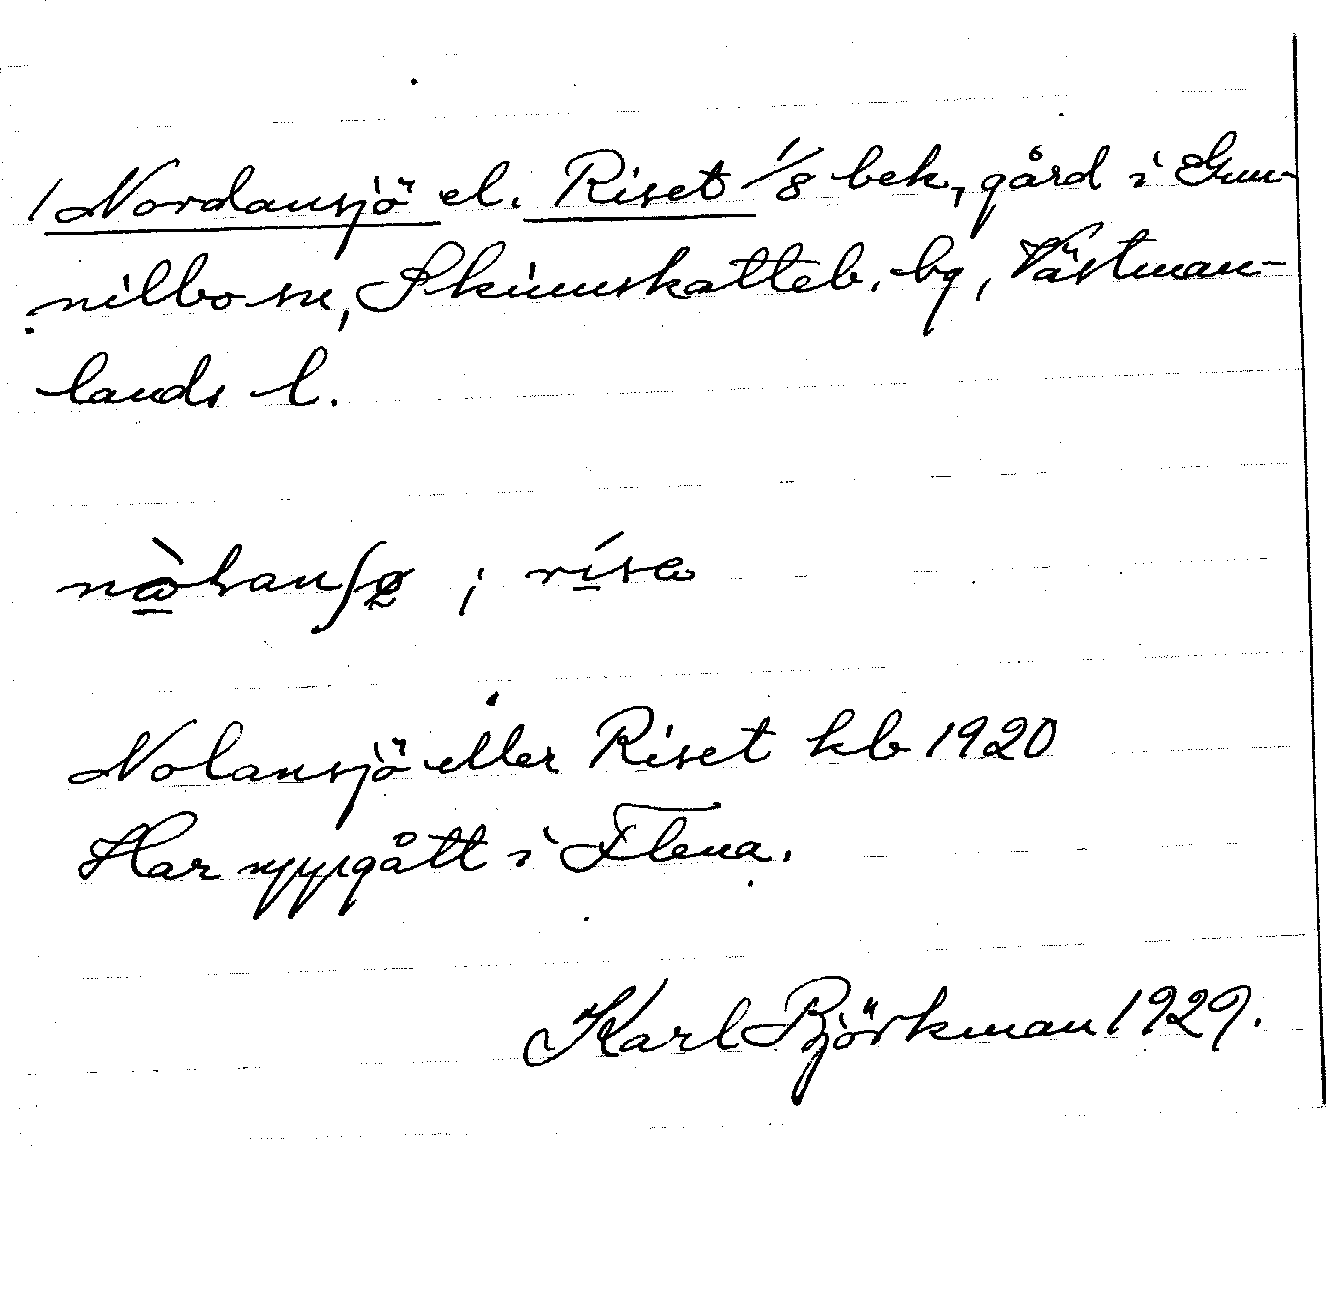 1 Nordansjö el. Riset 1/8 bek, gård i Gun-
nilbo sn, Skinnskatteb. bg, Västman-
lands l.
; rísa
Nolansjö eller Riset kb 1920
Har uppgått i Flena.
Karl Björkman 1929.